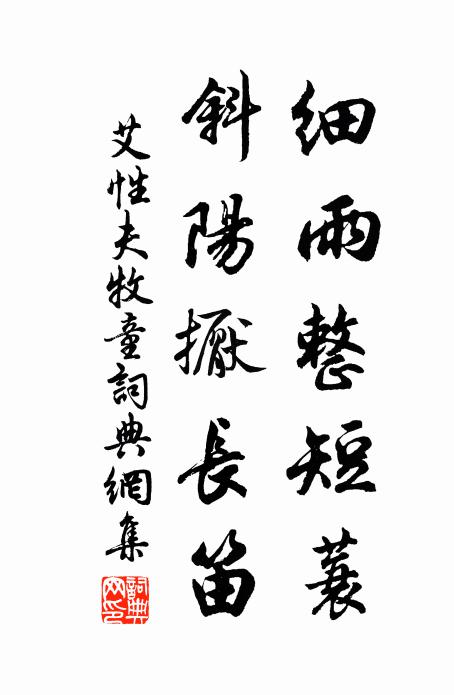 細雨整短蓑
斜陽擫長笛
艾性夫牧童詞典網集
詞典網印